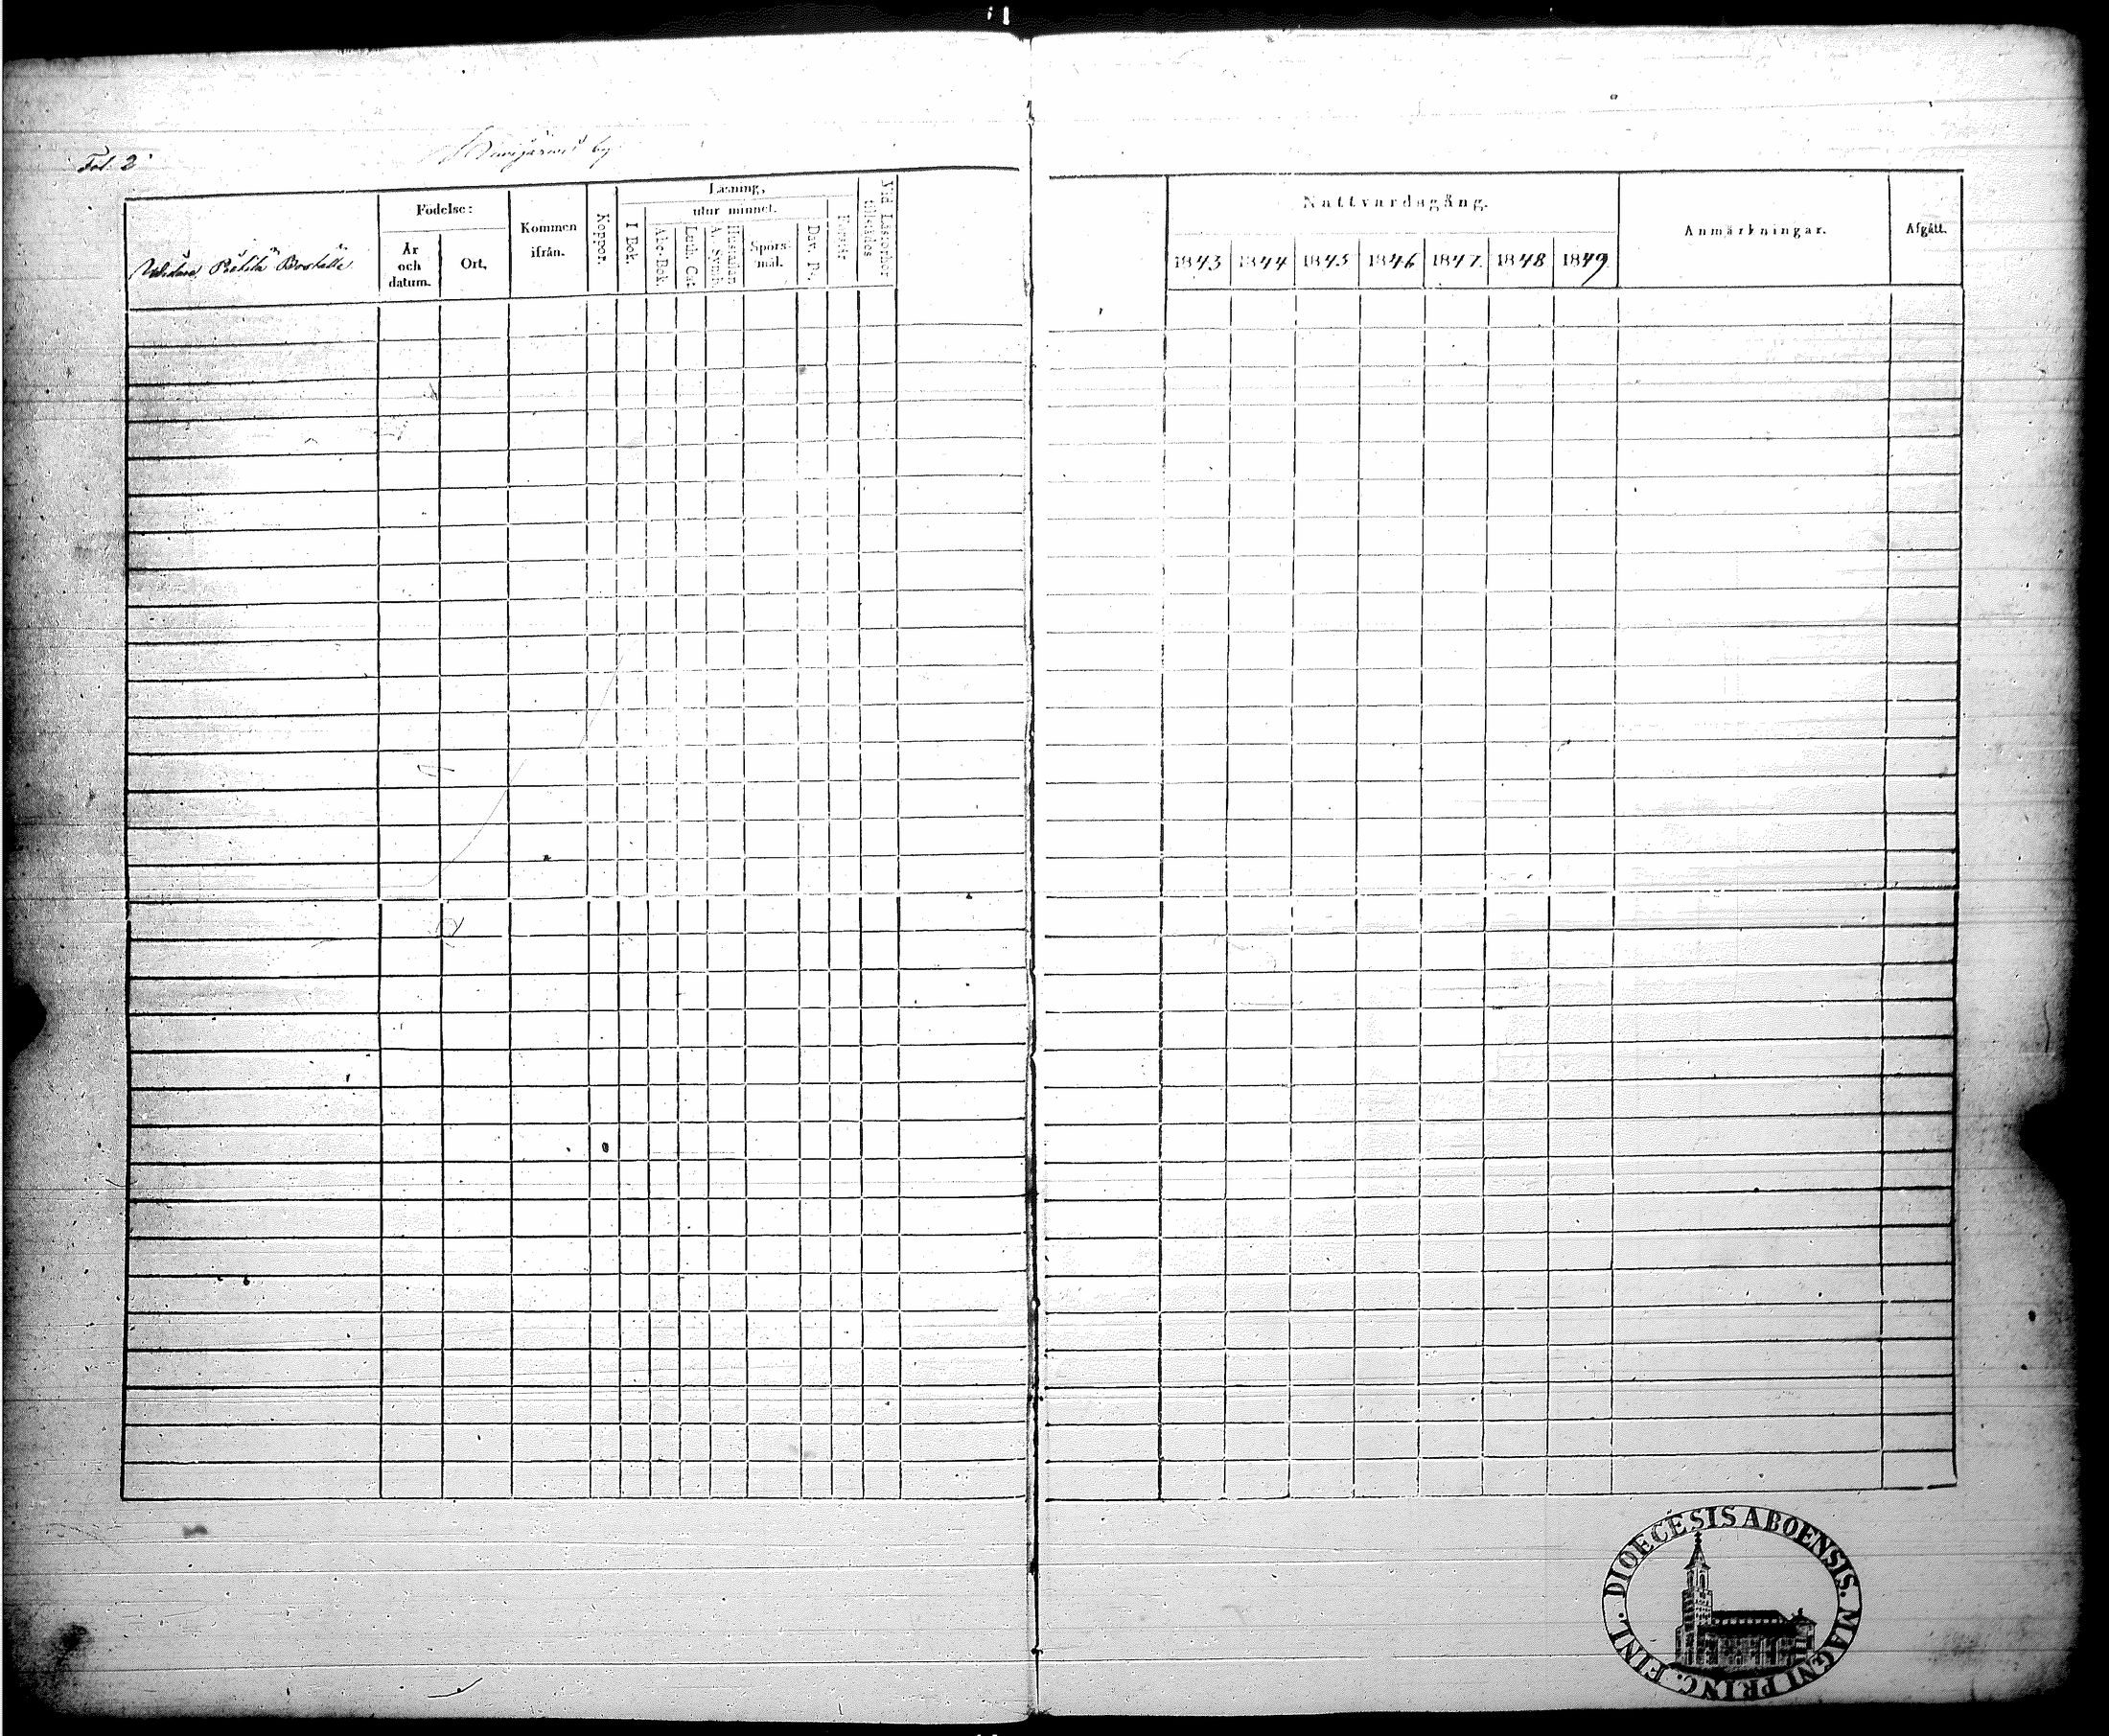 Fol. 2
by
Boställe
Födelse:
År
och
datum.
Ort.
Kommen
ifrån.
Koppor.
Läsning,
I Bok.
utur minnet.
Abc-Bok
Luth. Cat.
Hustaflan
A. Symb.
Spörs-
mål.
Dav. Ps.
Förstår
Vid Läsförhör
tillstädes
Nattvardsgång.
1843 1844 1845 1846 1847 1848 1849
Anmärkningar.
Afgått.
DIOECESIS ABOENSIS. MAGNI PRINC. FINL.